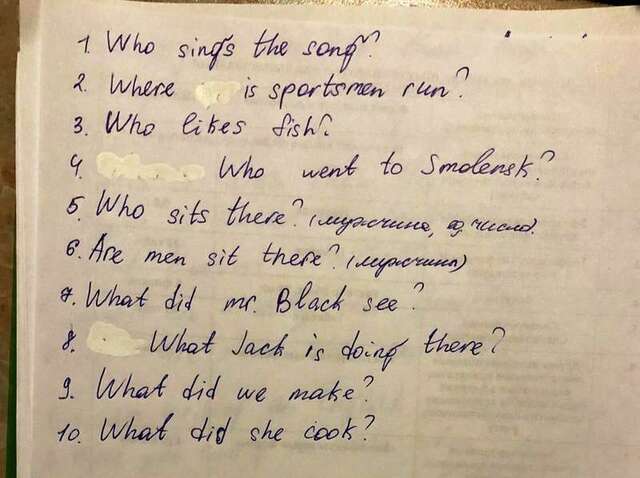 1. Who sings the song?
2. Where is sportsmen run?
3. Who likes fish?
4. Who went to Smolensk?
5. Who sits there? (мужчина, ед. число).
6. Are men sit there? (мужчины)
7. What did mr. Black see?
8. What Jack is doing there?
9. What did we make?
10. What did she cook?